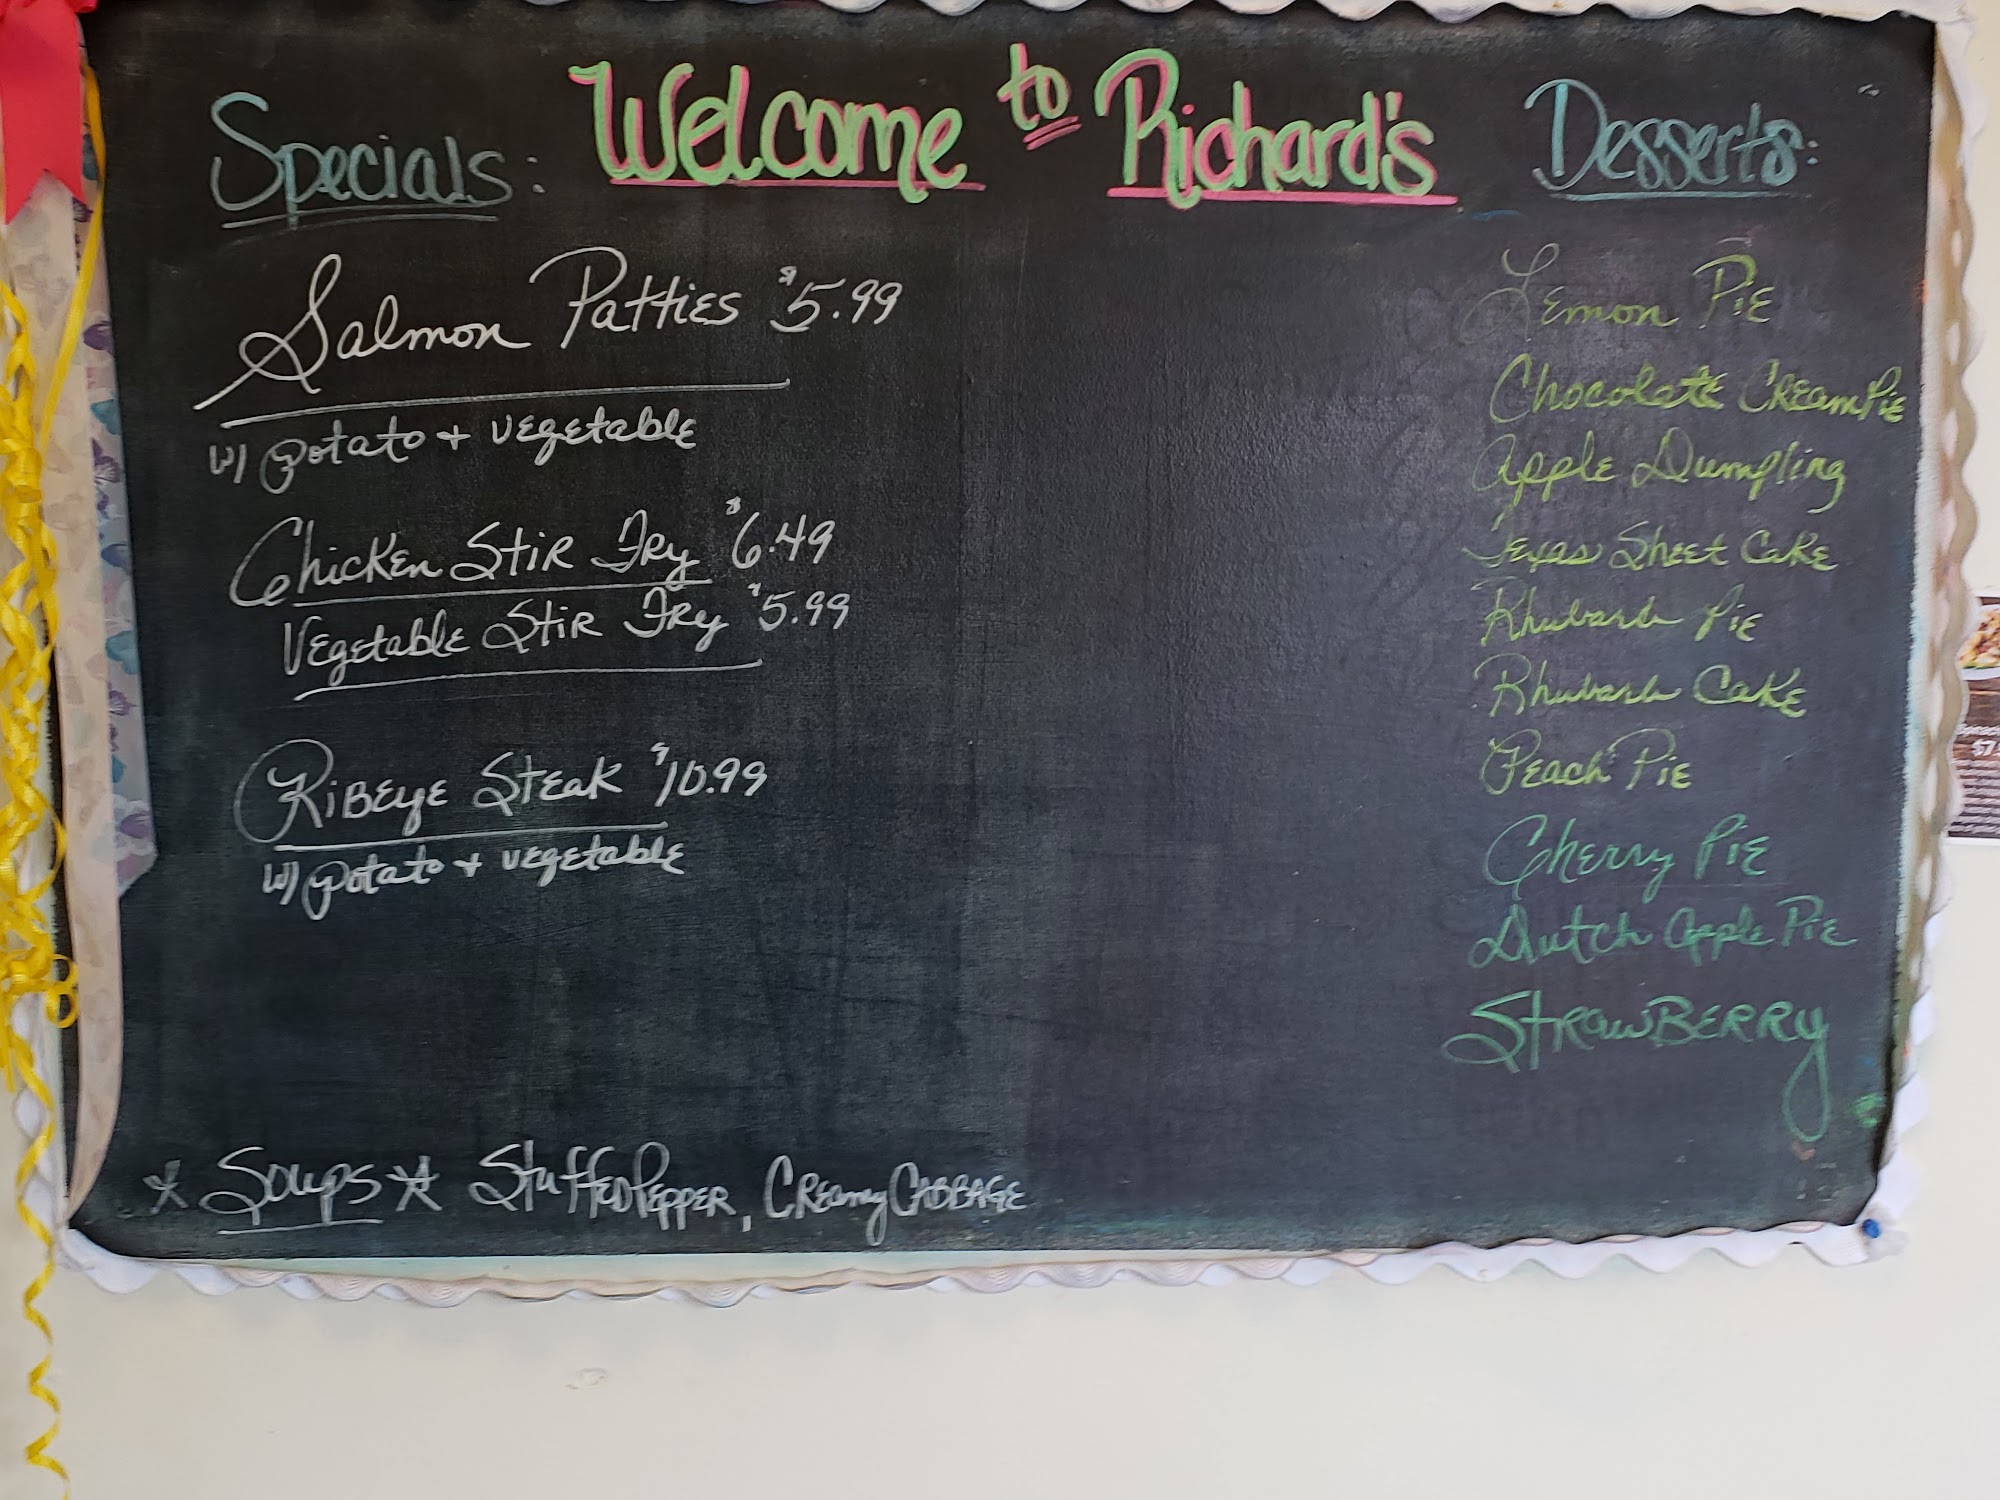 Welcome to Richard's
Specials:
Salmon Patties $5.99
w/ potato + vegetable
Chicken Stir Fry $6.49
Vegetable Stir Fry $5.99
Ribeye Steak $10.99
w/ potato + vegetable
* Soups * Stuffed Pepper, Creamy Cabbage
Desserts:
Lemon Pie
Chocolate Cream Pie
Apple Dumpling
Texas Sheet Cake
Rhubarb Pie
Rhubarb Cake
Peach Pie
Cherry Pie
Dutch Apple Pie
Strawberry